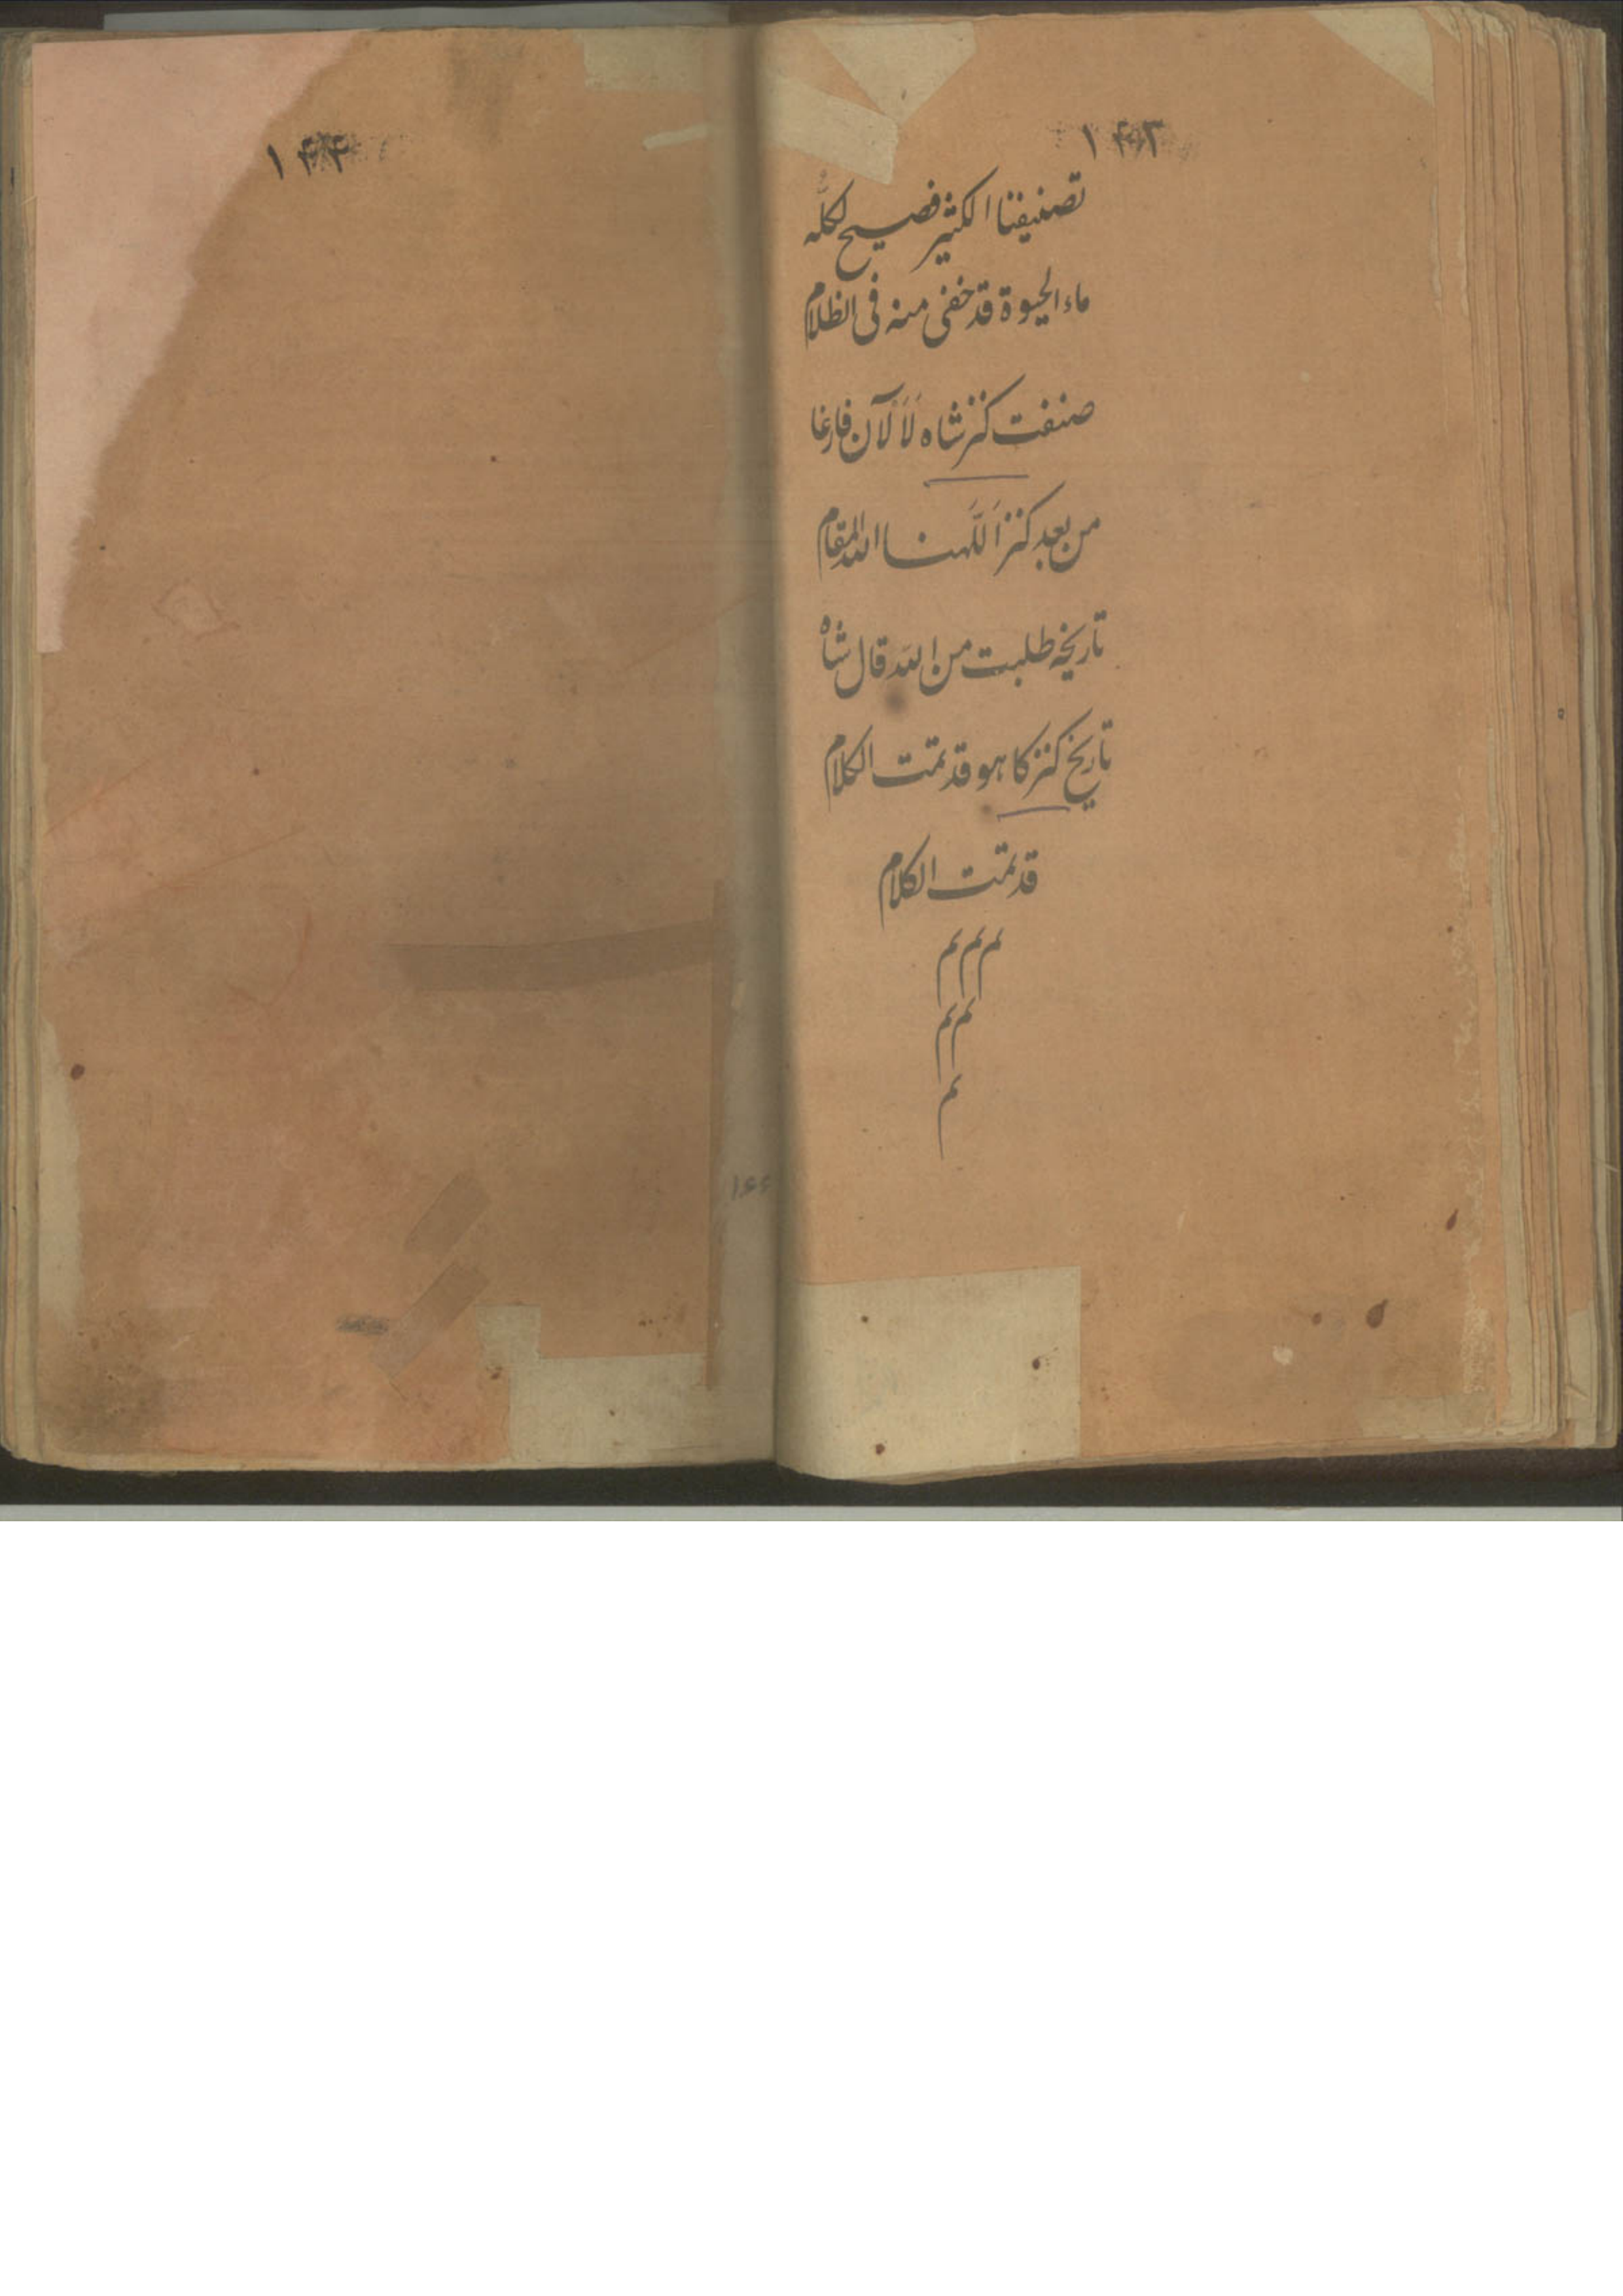 ١۴٣
تصنیفنا الکثیر فصیح لکلّه
ماء الحیوة قد خفی منه فی الظلام
صنفت کنز شاه لَاَلْآن فارغا
من بعد کنز اَللّهنا الله المقام
تاریخه طلبت من الله قال شاه
تاریخ کنز کا هو قد تمت الکلام
قد تمت الکلام
م م م
م م
م
١۴۴